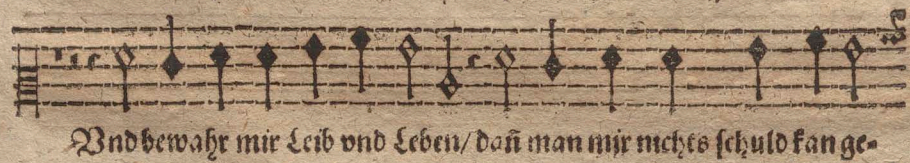 Vnd bewahr mir Leib vnd Leben/ dañ man mir nichts ſchuld kan ge-